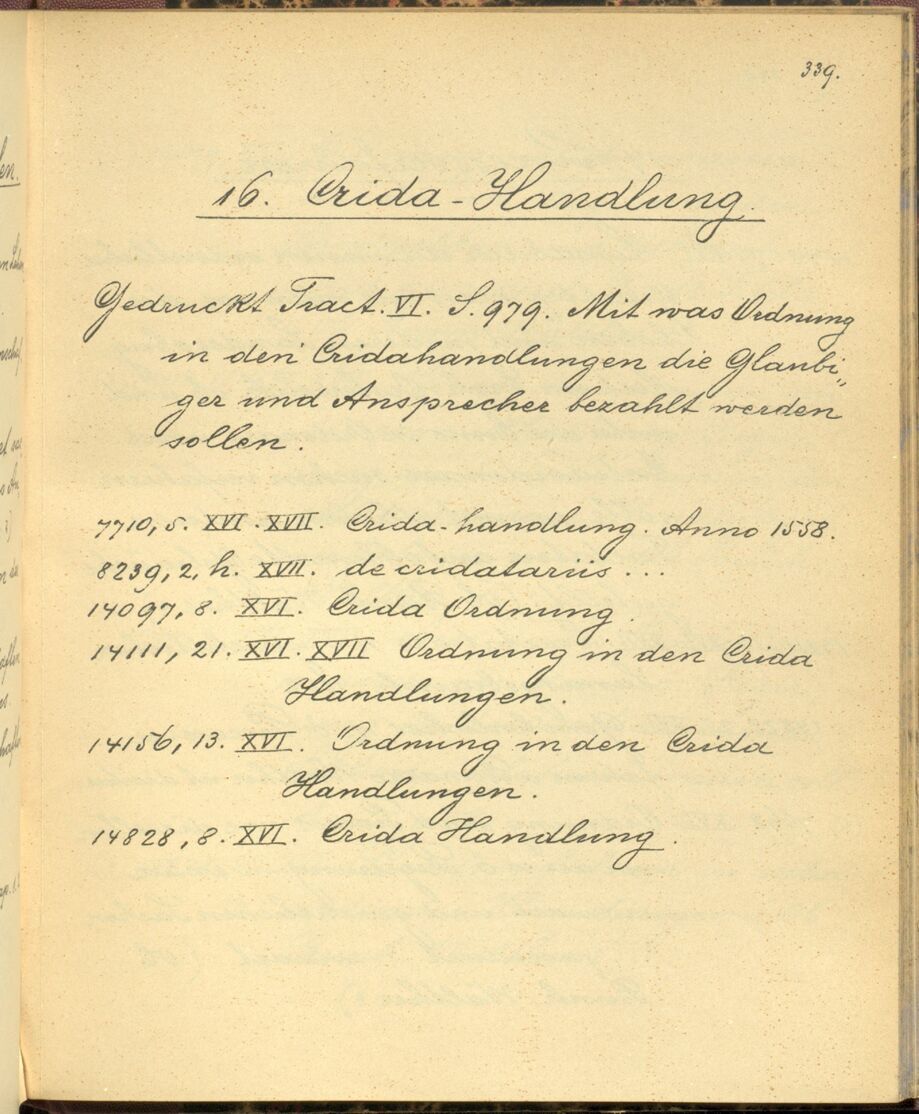 339.
16. Crida-Handlung.
Gedruckt Tract. VI. S. 979. Mit was Ordnung
in den Cridahandlungen die Glaubi„
ger und Ansprecher bezahlt werden
sollen.
7710, 5. XVI. XVII. Crida-handlung. Anno 1558.
8239, 2, h. XVII. de cridatariis...
14097, 8. XVI. Crida Ordnung.
14111, 21. XVI. XVII Ordnung in den Crida
Handlungen.
14156, 13. XVI. Ordnung in den Crida
Handlungen.
14828, 8. XVI. Crida Handlung.